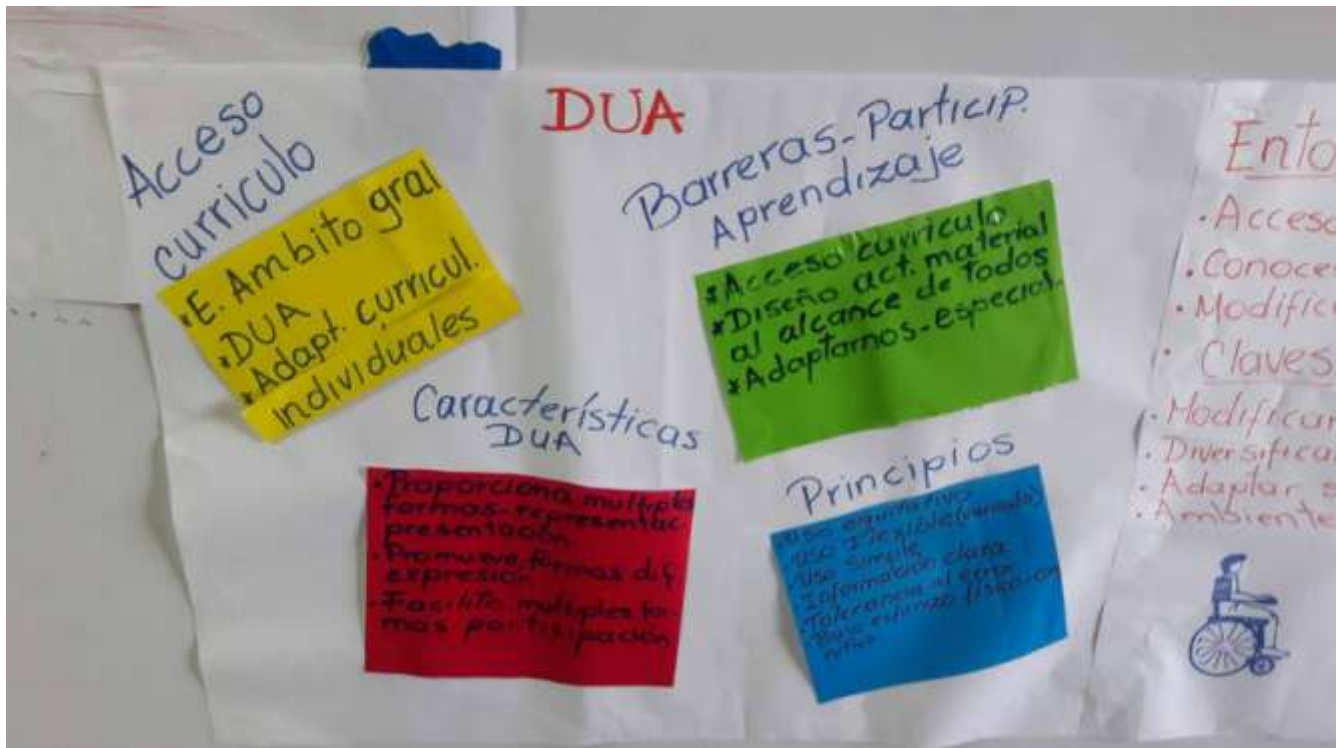 DUA
Acceso
curriculo
• E. Ambito gral
• DUA
• Adapt. curricul.
individuales
Barreras-Particip.
Aprendizaje
* Acceso curriculo
* Diseño act. material
al alcance de todos
* Adaptarnos-especial.
Características
DUA
• Proporciona multiple
formas-representac
presentación
• Promueve formas dif.
expresión
• Facilita multiples for-
mas participación
Principios
• Uso equitativo
• Uso flexible (variado)
• Uso simple
• Información clara
• Tolerancia al error
• Bajo esfuerzo físico
Ento
• Acceso
• Conoce
• Modific
• Claves
• Modificar
• Diversificar
• Adaptar s
• Ambiente